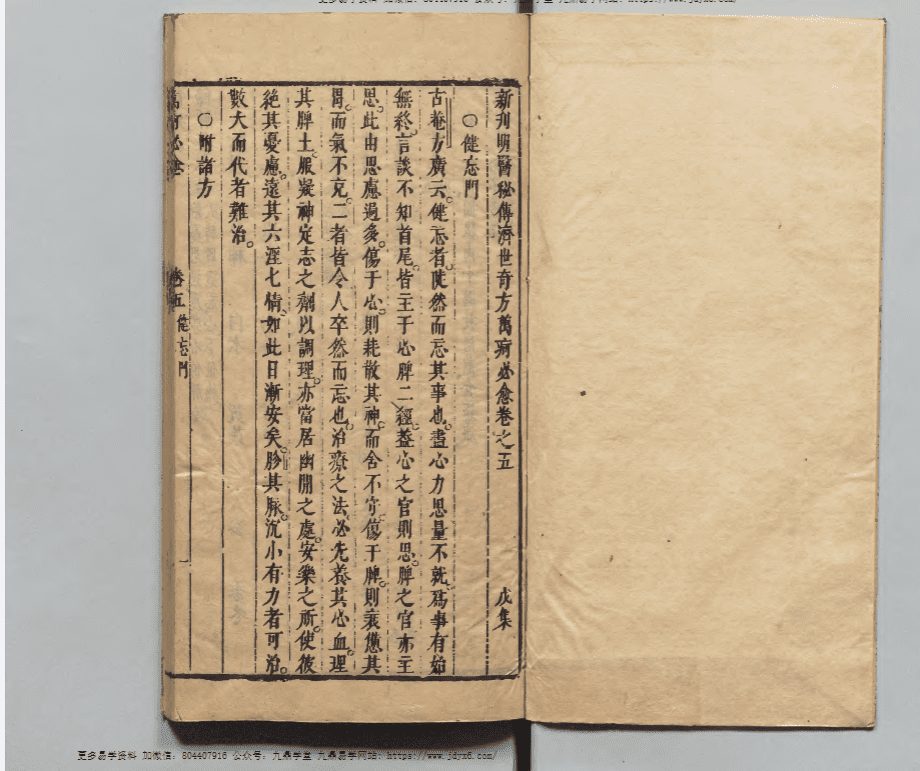 新刋明醫秘傳濟世奇方萬病必愈卷之五 戊集
〇健忘門
古菴方廣云。健忘者。陡然而忘其事也。盡心力思量不就。爲事有始
無終。言談不知首尾。皆主于心脾二經。葢心之官則思。脾之官亦主
思。此由思慮過多。傷于心。則耗散其神。而舍不守。傷于脾。則衰憊其
胃。而氣不充。二者皆令人卒然而忘也。治療之法。必先養其心血。理
其脾土。服凝神定志之劑以調理。亦當居幽閒之處。安樂之所。使彼
絕其憂慮。遠其六淫七情。如此日漸安矣。胗其脉。沉小有力者可治。
數大而代者難治。
〇附諸方
卷五 健忘門 一
更多易学资料 加微信：804407916 公众号：九鼎学堂 九鼎易学网站：https://www.jdyx6.com/